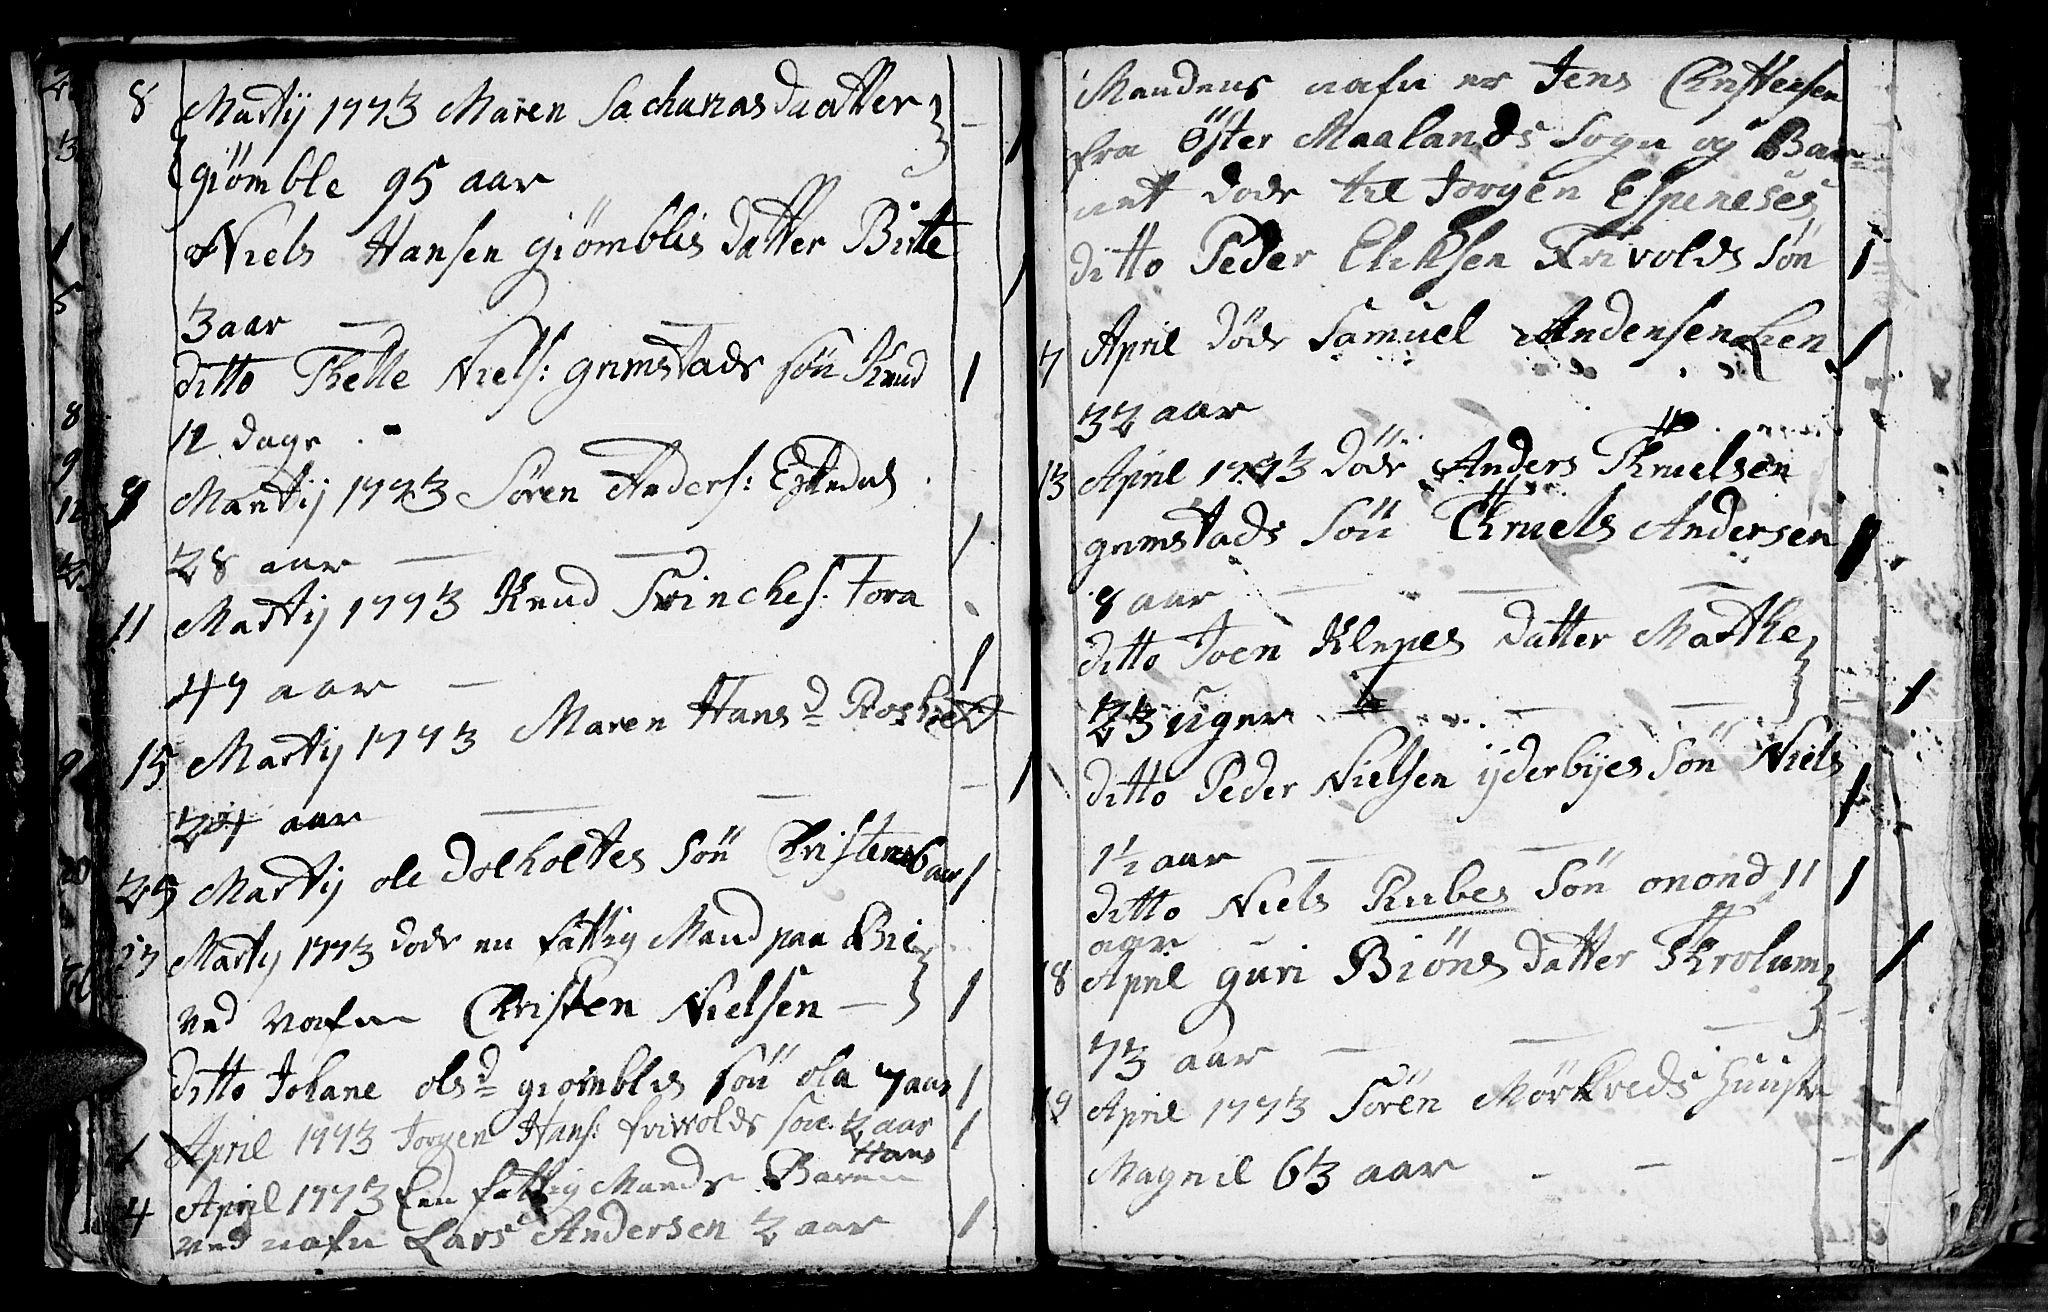 8 Martij 1773 Maren Sachariasdaatter
giömble 95 aar
Niels Hansen giömbles datter Birte
3 aar
ditto Thelle Niels: grimstads sön Knud 1
12 dage
9 Martij 1773 Sören Anders:
28 aar 1
11 Martij 1773 Knud Svinches: Tora
47 aar 1
15 Martij 1773 Maren Hansd
24 aar 1
25 Martij ole Dolholtes Sön Christen 6 aar 1
27 Martij 1773 dode en fattig Mand paa Bie
ved nafn Christen Nielsen 1
ditto Johane olsd giömbles sön ola 7 aar 1
1 April 1773 Jorgen Hans: frivolds sön 2 aar 1
Hans
4 April 1773 Een fattig Mands Baren
ved nafn Lars Andersen 2 aar 1
Mandens nafn er Jens Christensen
fra Öster Maalands Sogn og Bar-
net dode til Jorgen Espeneses
ditto Peder Eliksen Frivolds Sön 1
7 April döde Samuel Andersen Lien 1
32 aar
13 April 1773 döde Anders Thruelsen
grimstads Sön Thruels Andersen 1
8 aar
ditto Joen Klepes datter Marthe
23 uger 1
ditto Peder Nielsen ijderbijes Sön Niels 1
1½ aar
ditto Niels Rubes Sön onond 11 1
aar
18 April guri Biöns datter Throlum 1
73 aar
19 April 1773 Sören Mörkveds Huustr
Magnil 63 aar 1